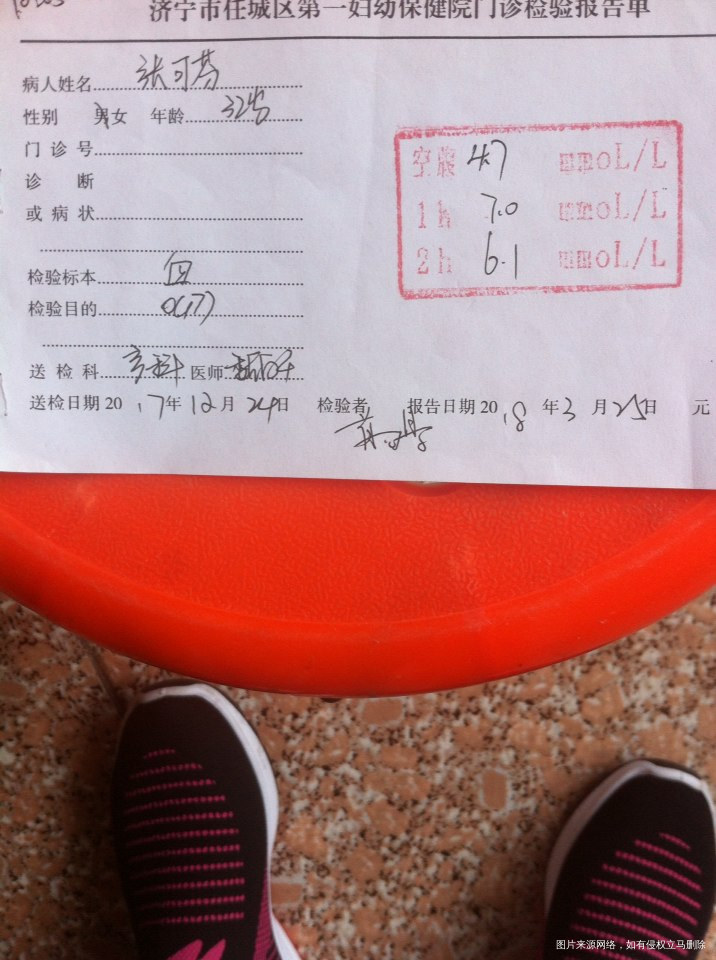 济宁市任城区第一妇幼保健院门诊检验报告单
病人姓名 张可芬
性别 男女 年龄 32岁
门诊号
诊 断
或病状
检验标本 血
检验目的 OGTT
送检科 产科 医师
送检日期 2017年12月24日 检验者 报告日期 2018年3月25日 元
空腹 4.7 mmoL/L
1h 7.0 mmoL/L
2h 6.1 mmoL/L
图片来源网络，如有侵权立马删除